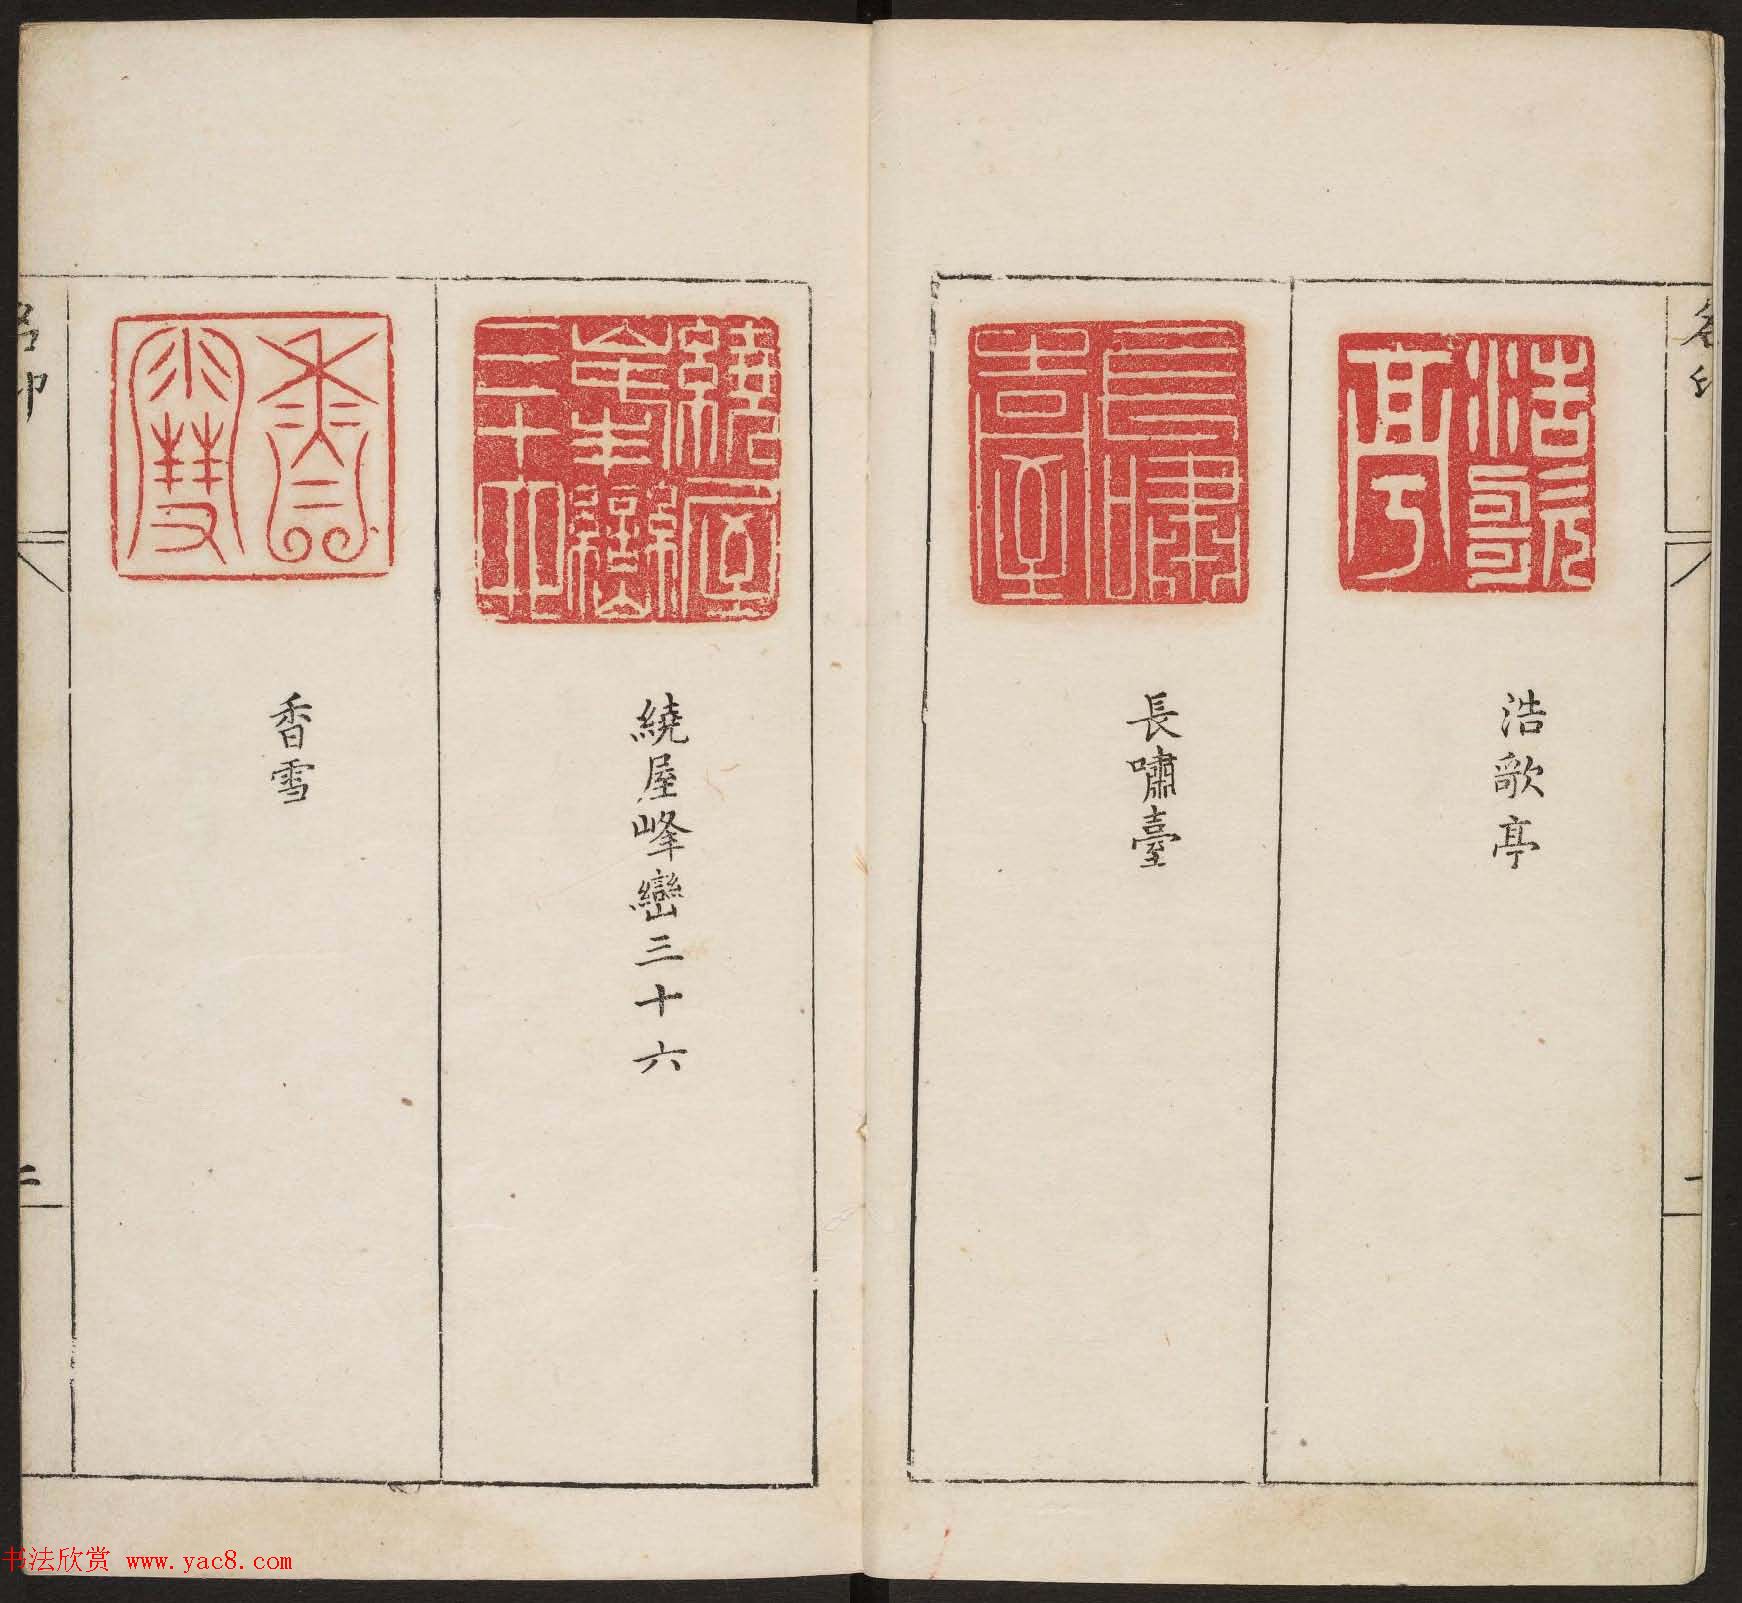 浩歌亭
浩歌亭
長嘯臺
長嘯臺
繞屋峰巒三十六
繞屋峰巒三十六
香雪
香雪
二
书法欣赏 www.yac8.com